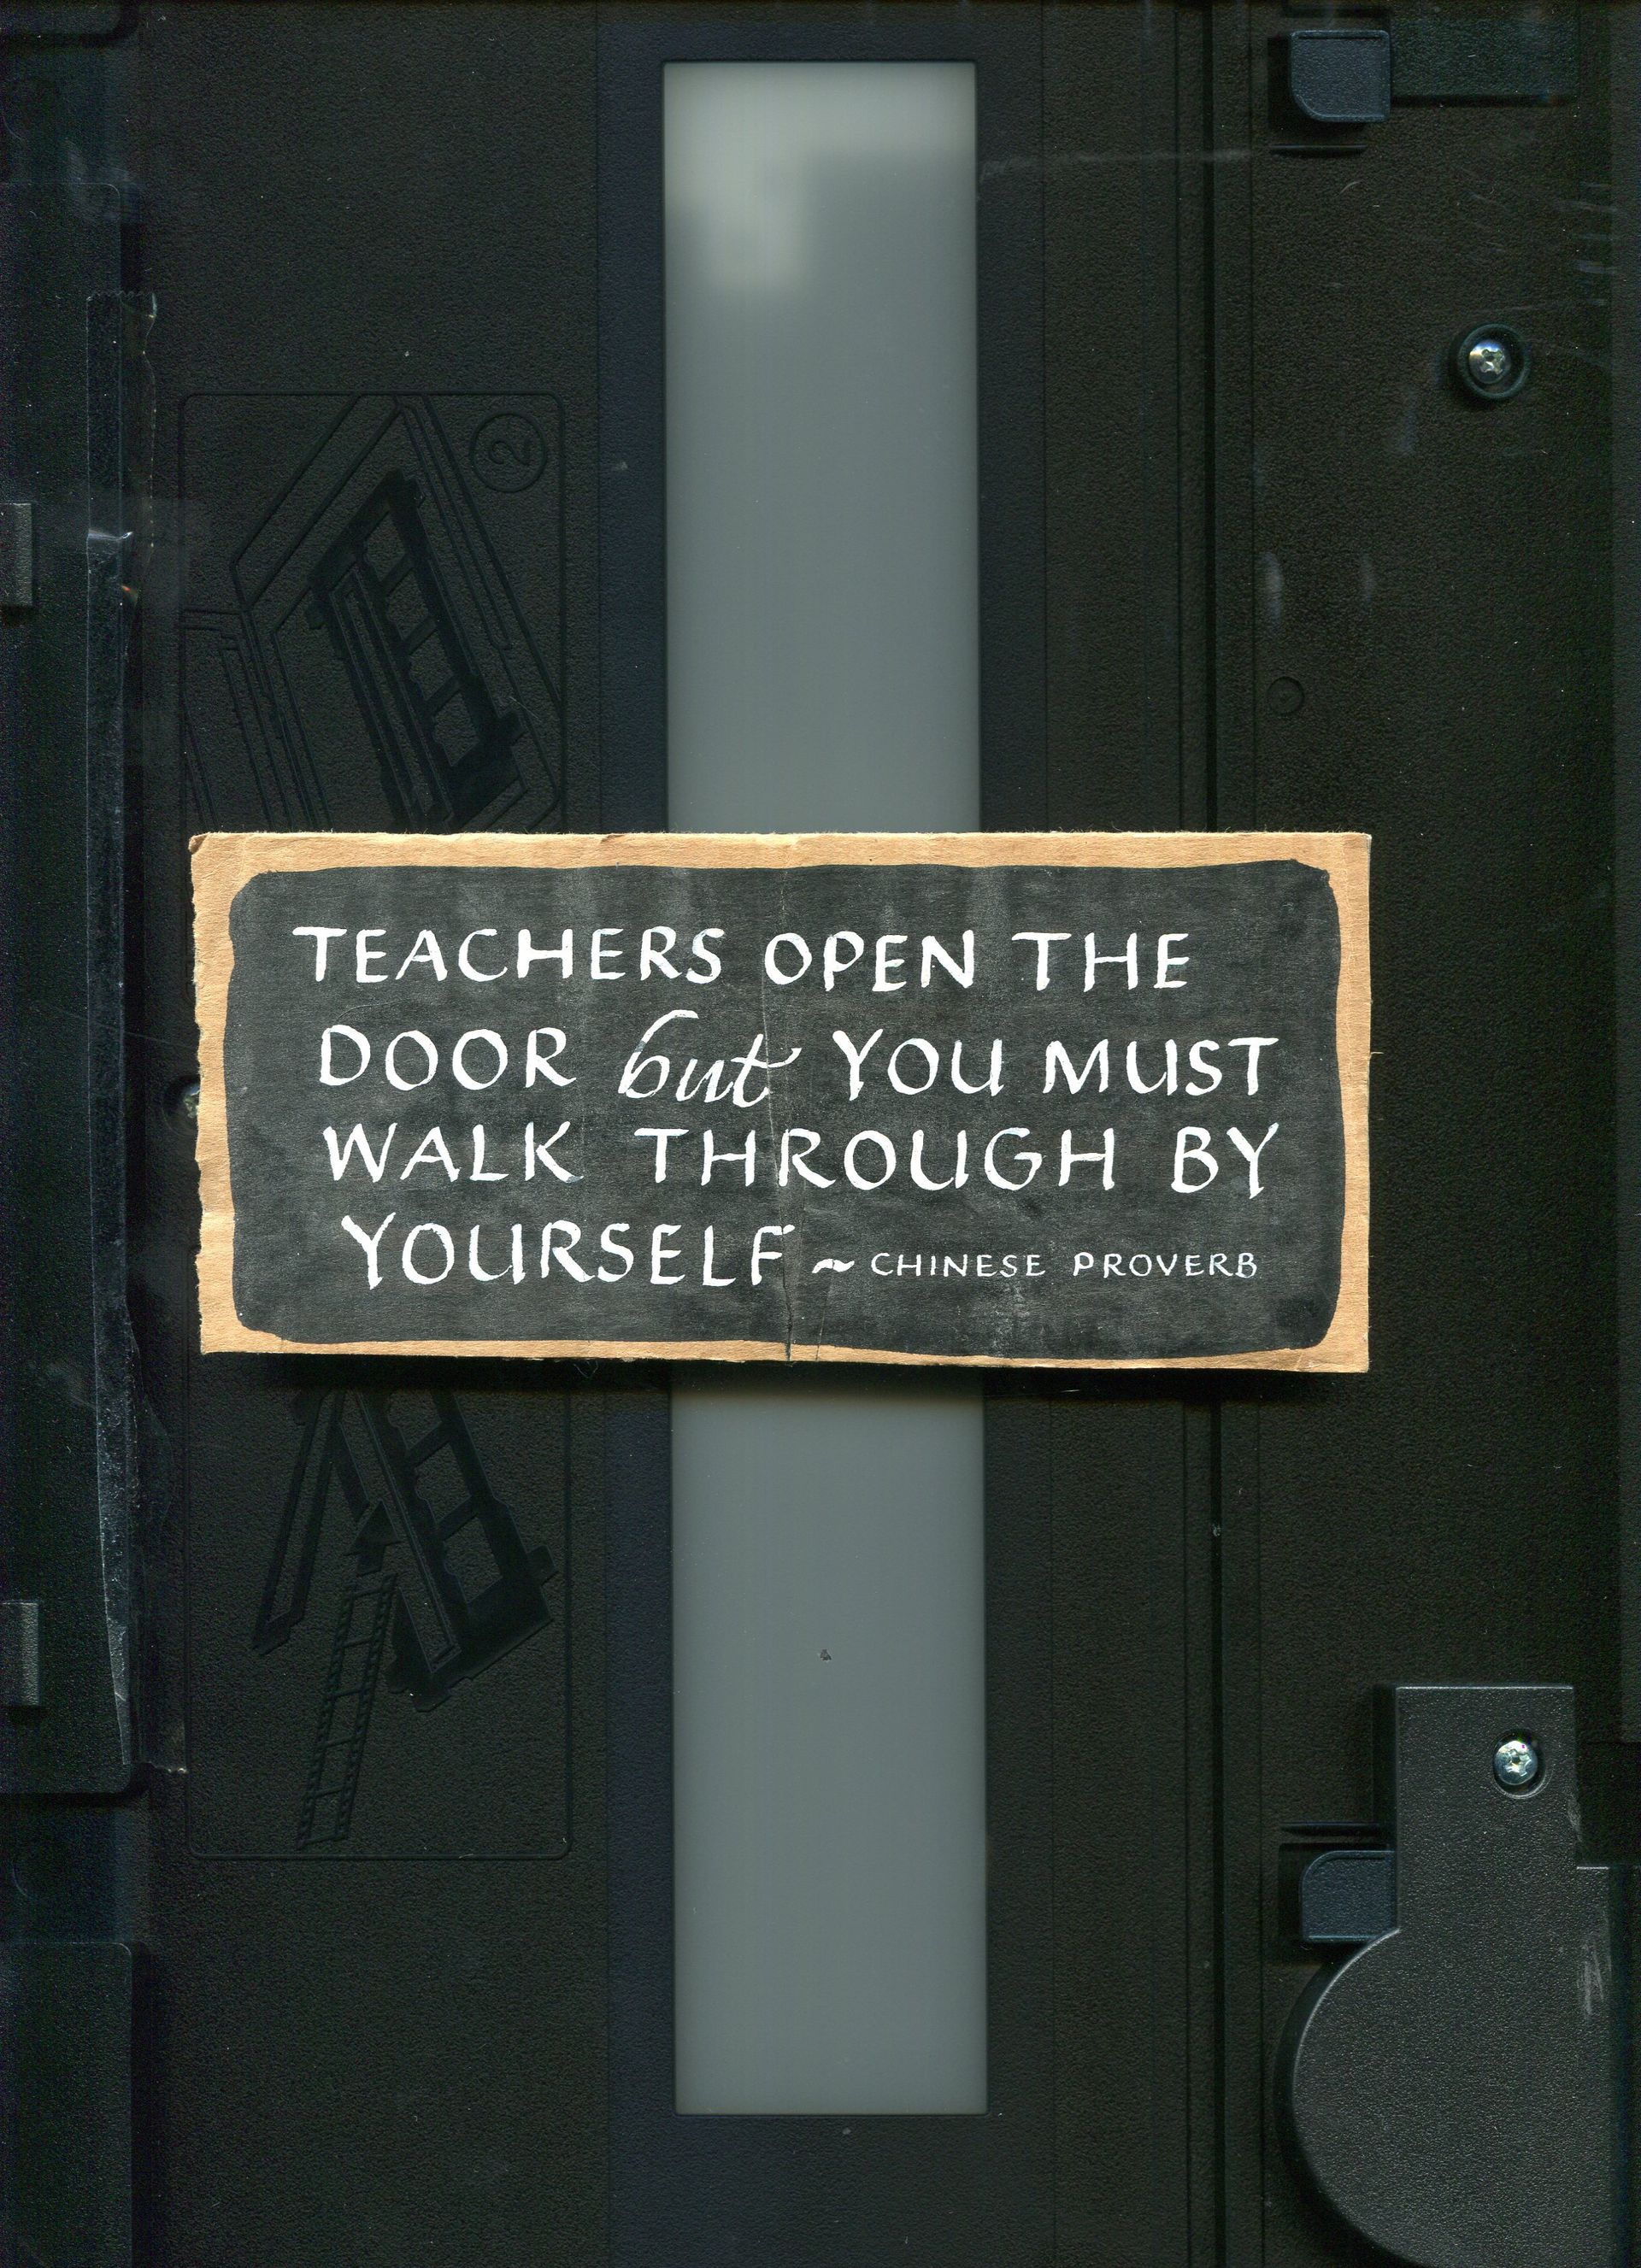 2
TEACHERS OPEN THE
DOOR but YOU MUST
WALK THROUGH BY
YOURSELF ~ CHINESE PROVERB